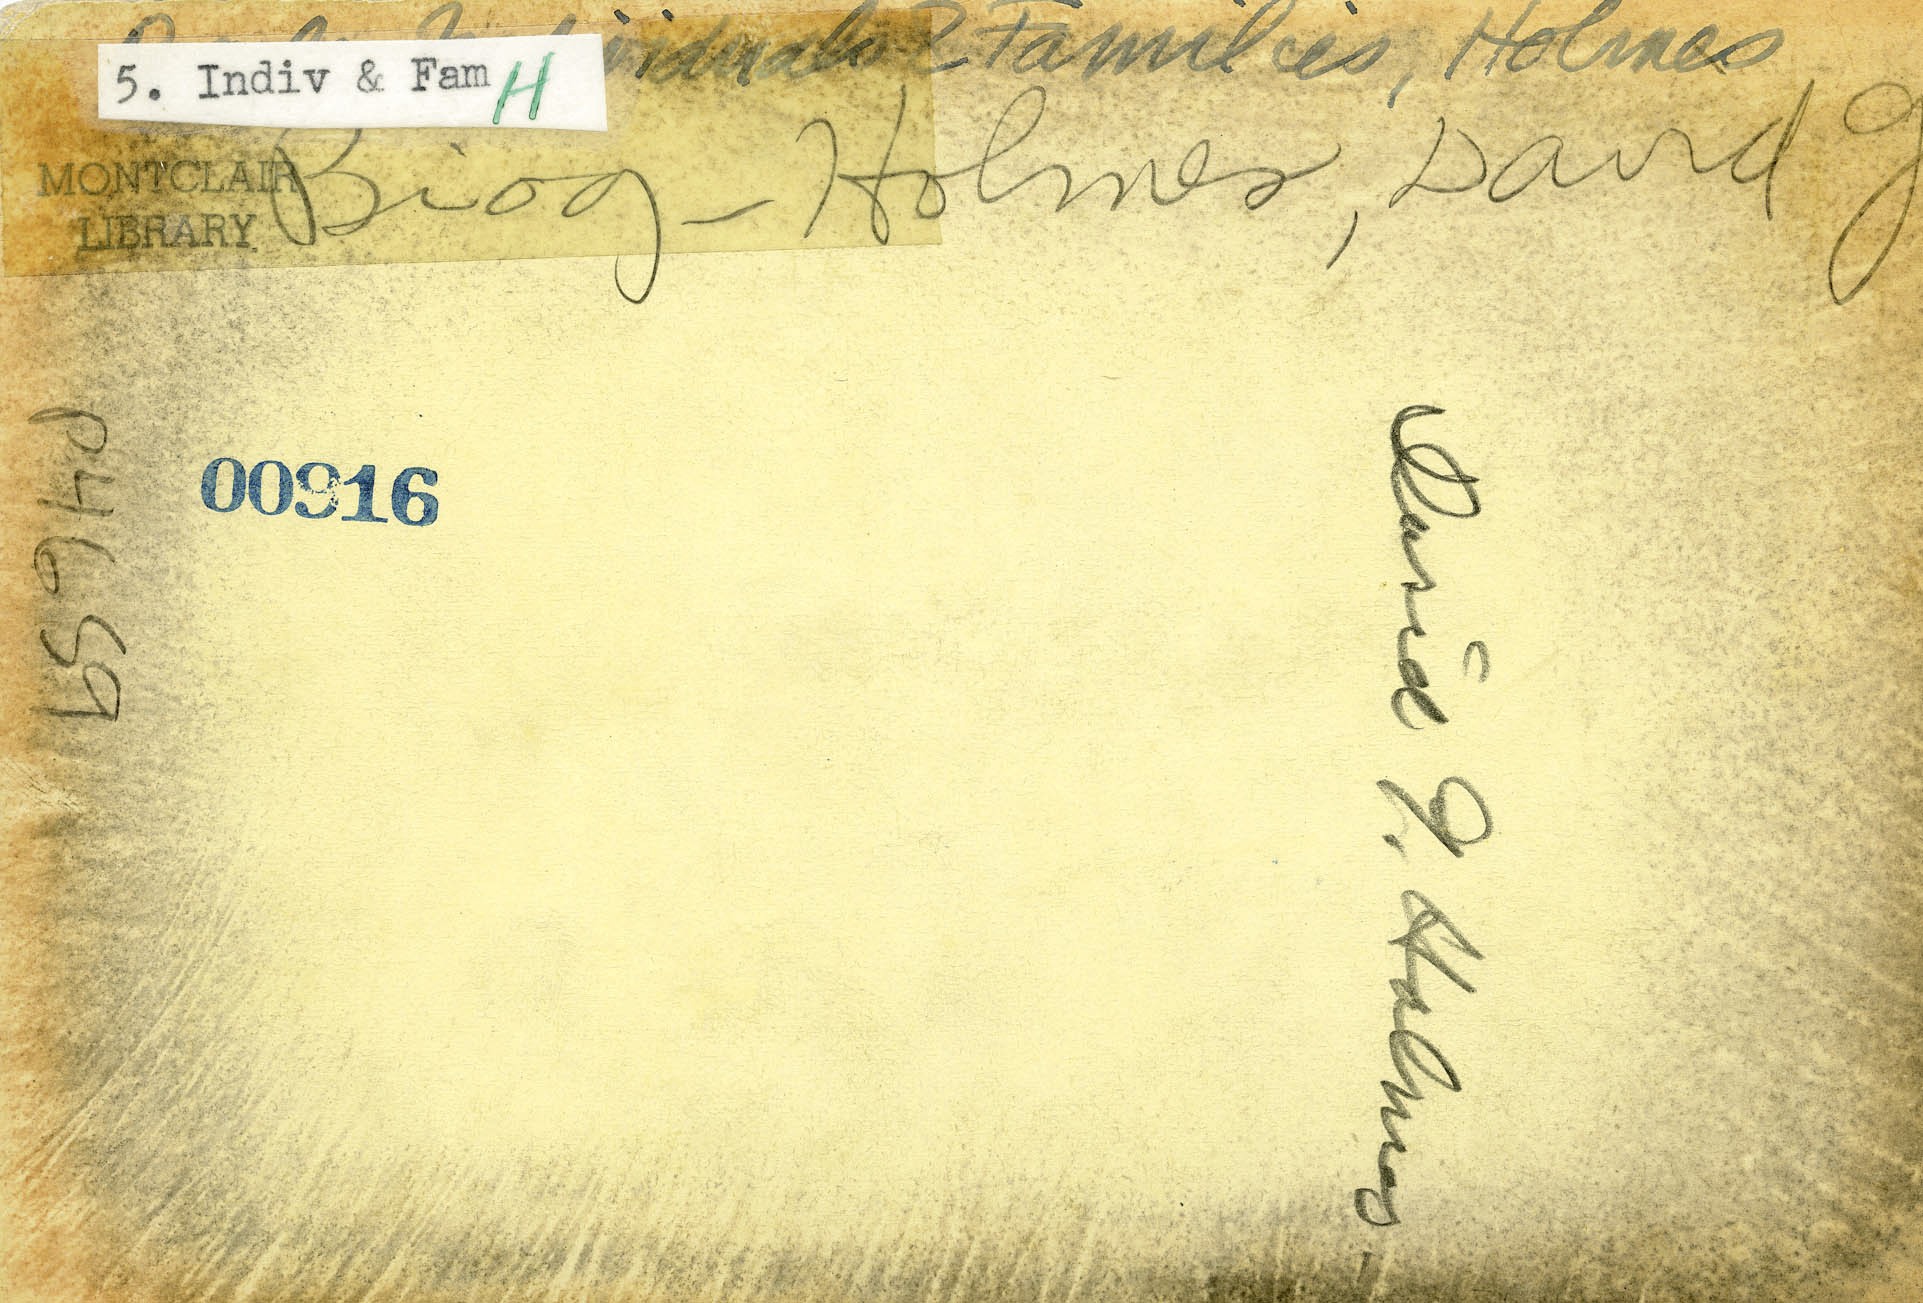 Individuals & Families, Holmes
5. Indiv & Fam H
MONTCLAIR
LIBRARY
Biog - Holmes, David J
00916
P4659
David J. Holmes -